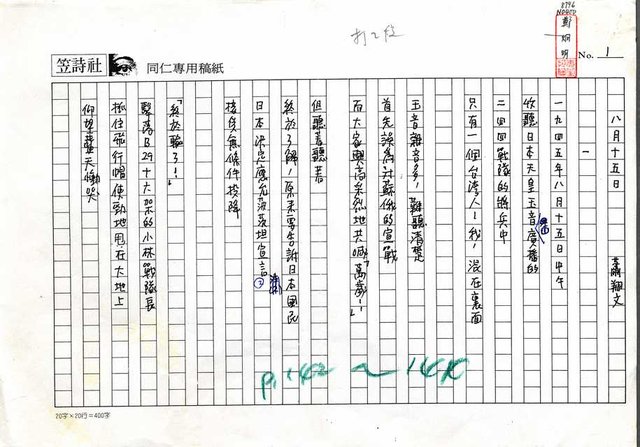 笠詩社
同仁專用稿紙
打2段
鄭炯明
No. 1
八月十五日
蕭翔文
一
一九四五年八月十五日中午
收聽日本天皇玉音廣播的
二四四戰隊的將兵中
只有一個台灣人-我,混在裏面
玉音雜音多,難聽清楚
首先誤為對蘇俄的宣戰
而大家興高采烈地共喊「萬歲!」
但聽著聽著
終於了解,原來要告訴日本國民
日本決定應允波茨坦宣言
接受無條件投降
「終於輸了!」
擊落B29十六架的小林戰隊長
抓住飛行帽使勁地甩在大地上
仰望藍天慟哭
P.142~14
20字×20行=400字